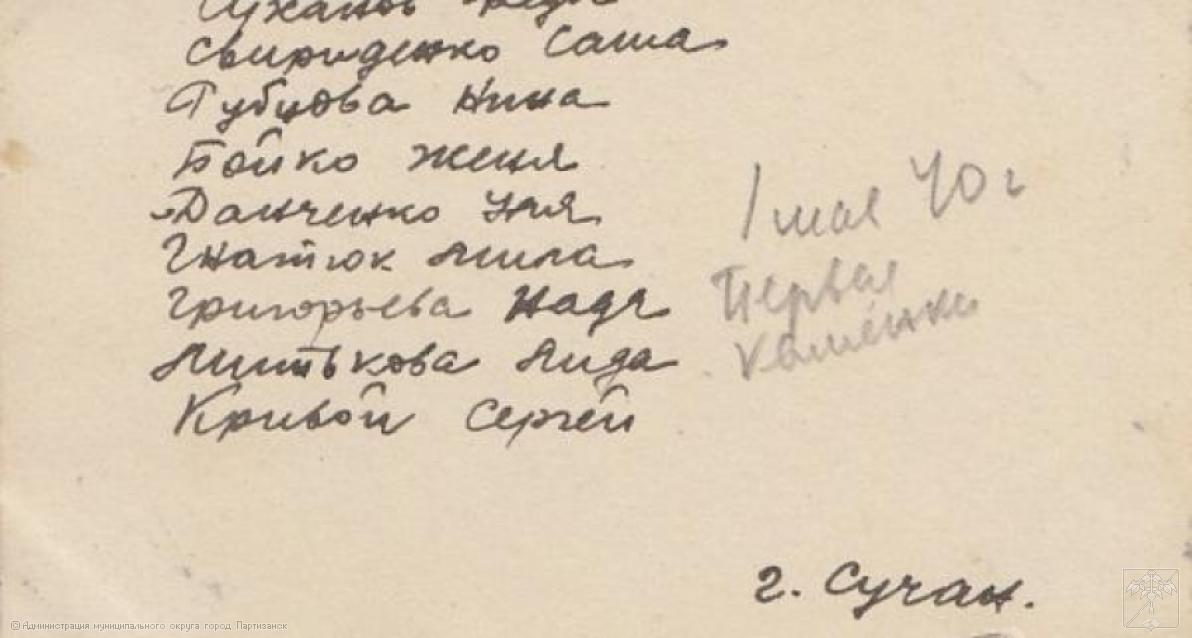 Суханов
Свириденко Саша
Губцова Нина
Бойко Женя
Данченко
Гнатюк Мила
Григорьева Надя
Митькова Лида
Кривой Сергей
1 мая 40 г
Первая
г. Сучан.
© Администрация муниципального округа город Партизанск